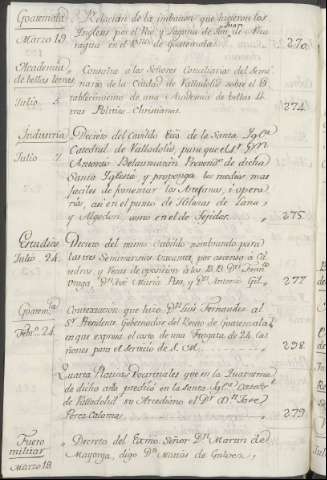 Guatemala
Marzo 19.
Relacion de la imbacion que hicieron los
Ingleses por el Rio y laguna de Sn. Juan de Nica
ragua en el Rno. de Guatemala
270.
Academia
de bellas letras
Julio 5
Consulta a los Señores Consiliarios del Semi-
nario de la Ciudad de Valladolid sobre el Es-
tablecimiento de una Academia de bellas le-
tras Politico Christianas.
274.
Industria
Julio 7
Decreto del Cavildo de la Santa Iga.
Catedral de Valladolid, para que el Sr.
Antonio Belaunzaran de dicha
Santa Iglesia y proponga los medios mas
faciles de fomentar los Artesanos, i opera-
rios, asi en el punto de Hilazas de Lana,
y Algodon, como en el de Tejidos.
275
Estudios
Julio 24.
Decreto del mismo Cabildo nombrando para
las tres vacantes, por ascenso á Ca-
y Vocas de oposicion á los B.B. Dn.
Dn. José Maria Paz, y Dn. Antonio Gil.
277
Guatema.
Febro. 24.
Contestacion que hizo Dn. Luis Fernandez al
Sr. Presidente Gobernador del Reyno de Guatemala
en que expresa el costo de una Fragata de 24 ca-
ñones para el servicio de S. M.
298.
Quarta Platica Doctrinal que en la Quaresma
de dicho año predicó en la Santa Iga. Catedral
de Valladolid su Arcediano el Dr. Dn. José
Perez Calama.
279
Fuero
militar
Marzo 18.
Decreto del Exmo. Señor Dn. Martin de
Mayorga, digo Dn. Matias de Galvez,